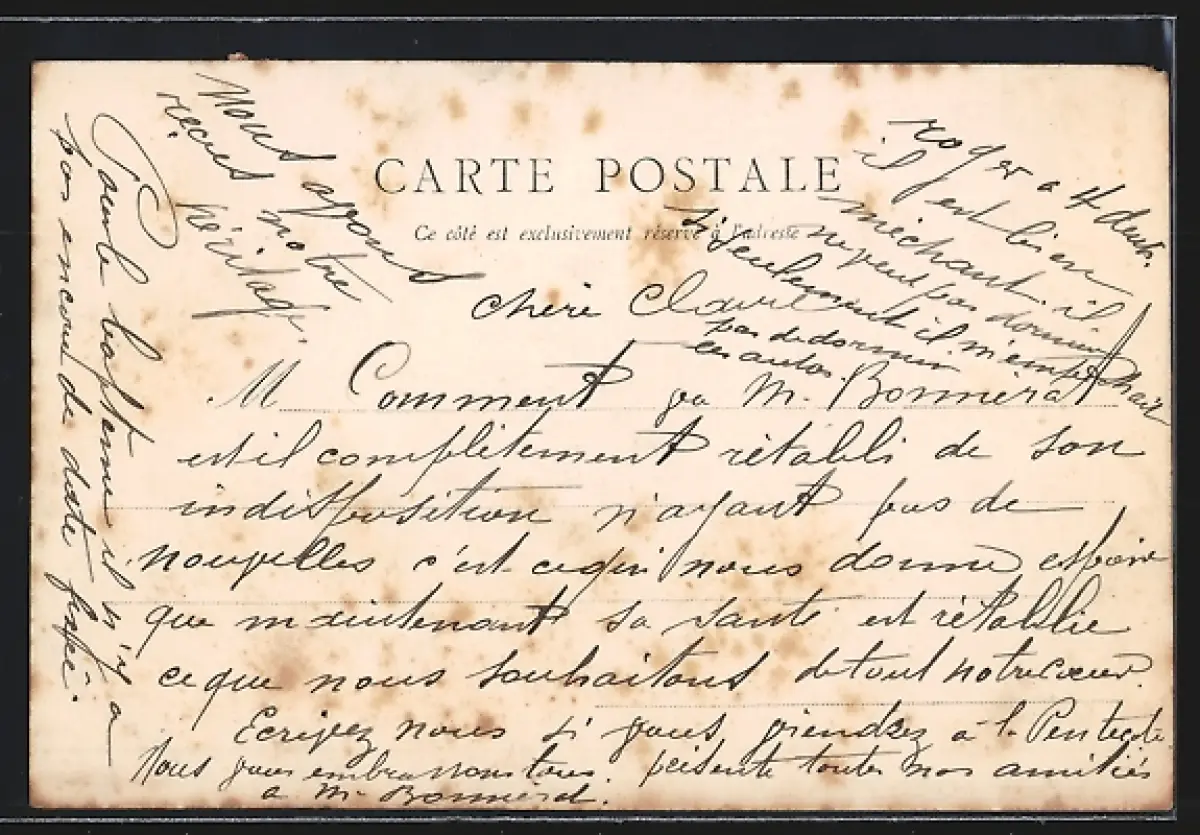 CARTE POSTALE
Ce côté est exclusivement réservé à l'adresse
chère Claire
M Comment va M. Bonnérat
est il complètement rétabli de son
indisposition n'ayant pas de
nouvelles c'est ce qui nous donne espoire
que maintenant sa santé est rétablie
ce que nous souhaitons de tout notre cœur.
Ecrivez nous si vous viendrez à la Pentecôte
Nous vous embrassons tous. présente toutes nos amitiés
à Mr Bonnérat.
Nous avons
reçus notre
héritage.
roger a 4 dents.
il est bien
méchant. il
ne veut pas dormir
si seulement il n'empechait
pas de dormir
les autres.
Pour le baptème il n'y a
pas encore de date fixé.